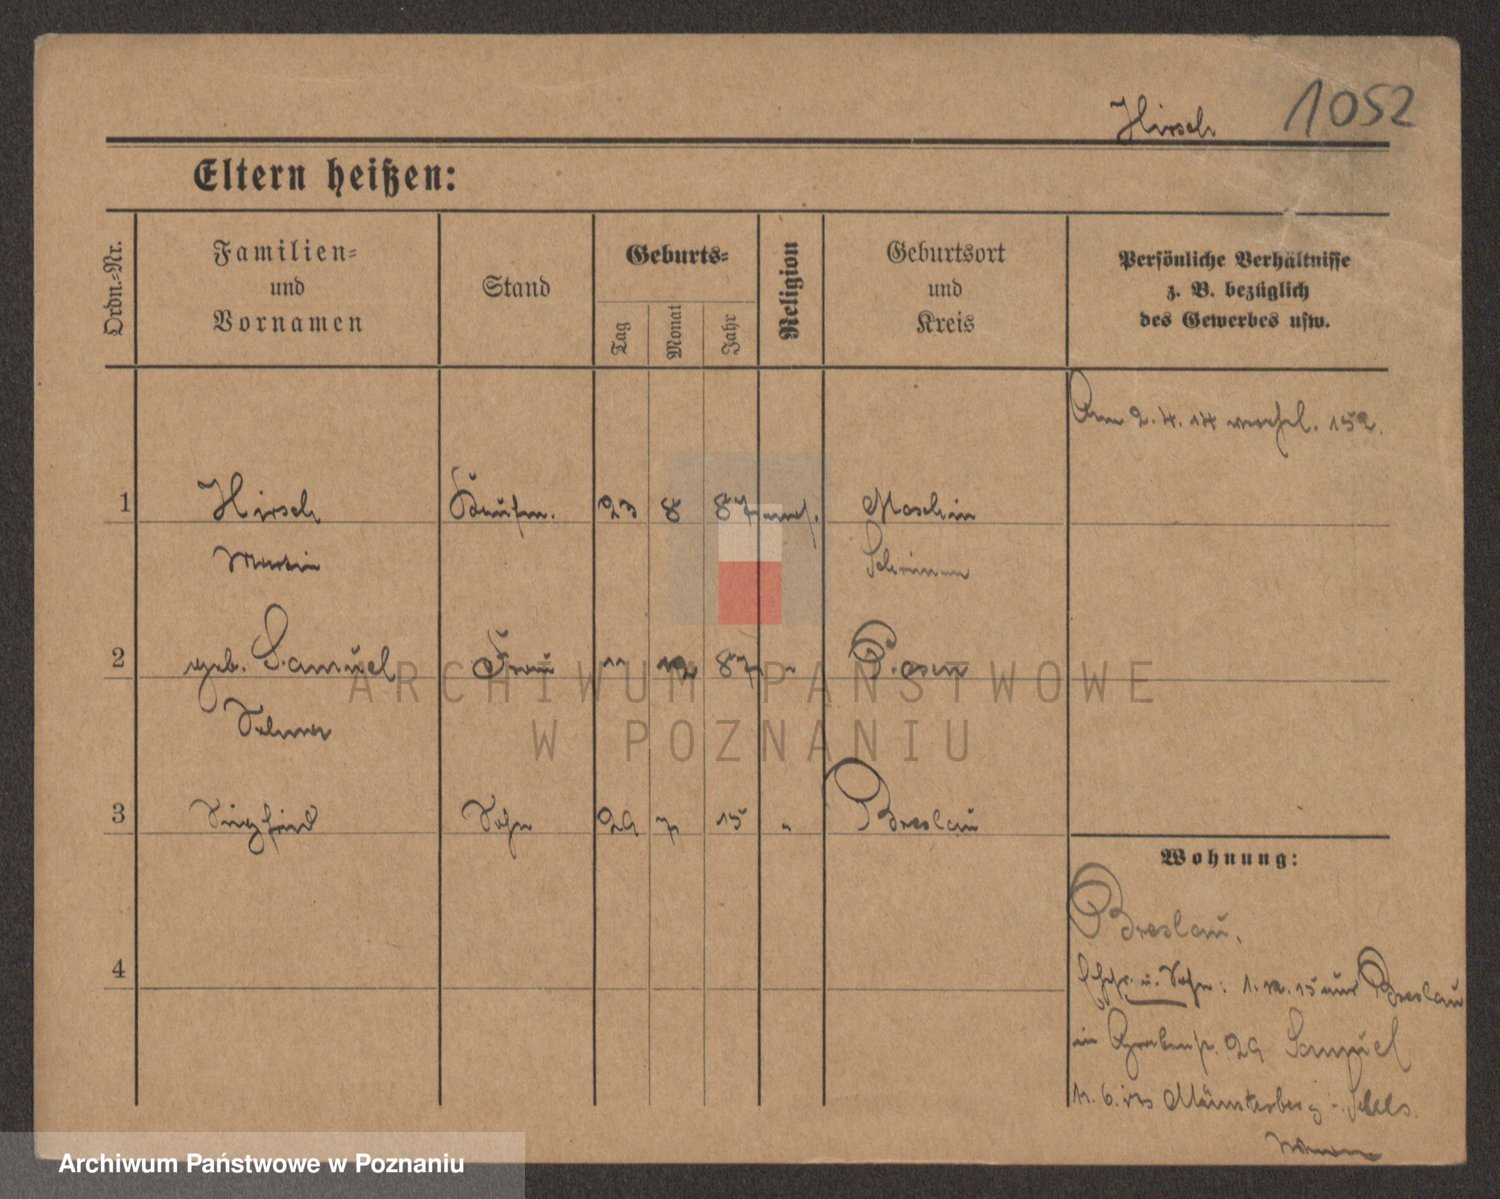 Hirsch 1052
Eltern heißen:
Ordn.-Nr.
Familien-
und
Vornamen
Stand
Geburts-
Tag
Monat
Jahr
Religion
Geburtsort
und
Kreis
Persönliche Verhältnisse
z. B. bezüglich
des Gewerbes usw.
Am 2. 4. 14
1 Hirsch Kaufm. 23 8 87 mos. Moschin
Martin Schrimm
2 geb. Samuel Frau 11 12 87 " Posen
Selma
3 Siegfried Sohn 29 7 15 " Breslau
4
Wohnung:
Breslau.
Ehefr. u. Sohn: 1. 12. 15 aus Breslau
in Grabenstr. 29 Samuel
Münsterberg - Schles.
ARCHIWUM PAŃSTWOWE
W POZNANIU
Archiwum Państwowe w Poznaniu